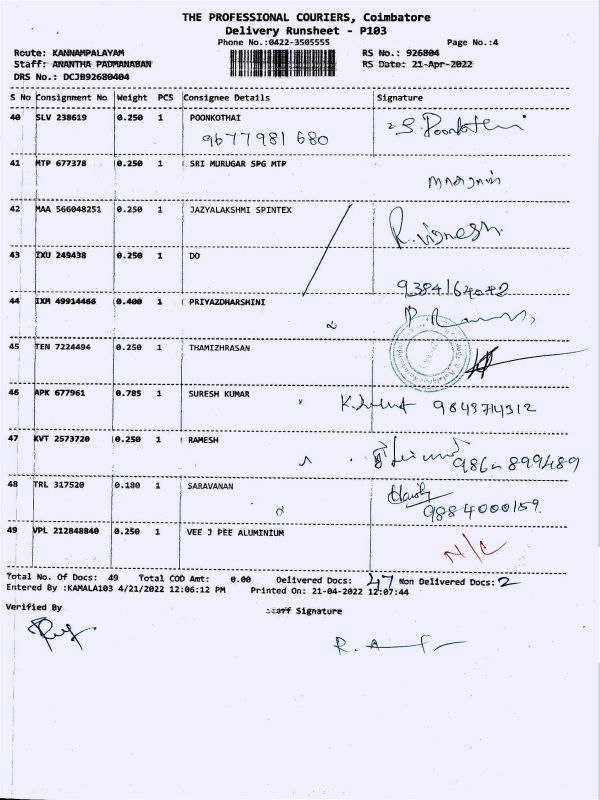 THE PROFESSIONAL COURIERS, Coimbatore
Delivery Runsheet - P103
Phone No.:0422-3505555 Page No.:4
Route: KANNAMPALAYAM RS No.: 926804
Staff: ANANTHA PADMANABAN RS Date: 21-Apr-2022
DRS No.: DCJB92680404
S No Consignment No Weight PCS Consignee Details Signature
40 SLV 238619 0.250 1 POONKOTHAI
9677981680
41 MTP 677378 0.250 1 SRI MURUGAR SPG MTP
42 MAA 566048251 0.250 1 JAZYALAKSHMI SPINTEX
R. Vignesh.
43 IXU 249438 0.250 1 DO
9384164042
44 IXM 49914466 0.400 1 PRIYAZDHARSHINI
45 TEN 7224494 0.250 1 THAMIZHRASAN
46 APK 677961 0.785 1 SURESH KUMAR
9843714312
47 KVT 2573720 0.250 1 RAMESH
48 TRL 317520 0.180 1 SARAVANAN
9884000159
49 VPL 212848840 0.250 1 VEE J PEE ALUMINIUM
N/C
Total No. Of Docs: 49 Total COD Amt: 0.00 Delivered Docs: 47 Non Delivered Docs: 2
Entered By :KAMALA103 4/21/2022 12:06:12 PM Printed On: 21-04-2022 12:07:44
Verified By Staff Signature